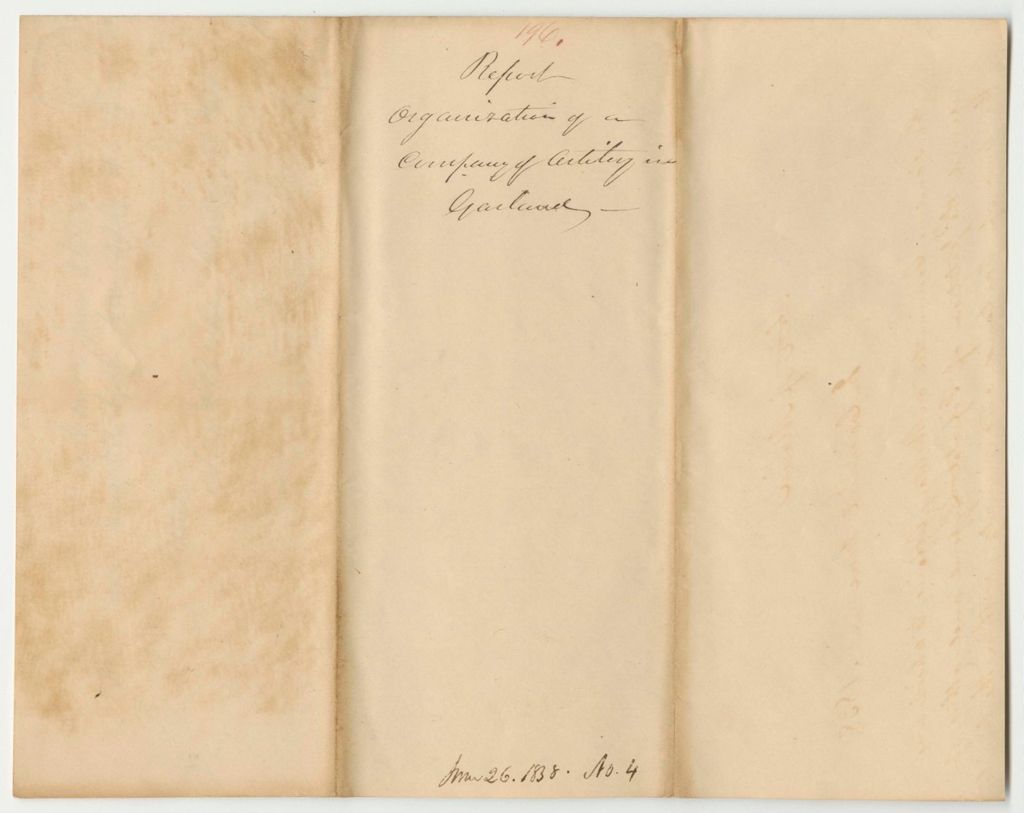 196.
Report
Organization of a
Company of Artillery in
Garland —
June 26. 1838. No. 4